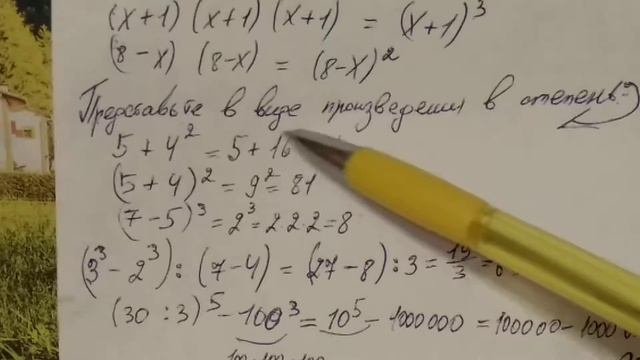 (x+1) (x+1) (x+1) = (x+1)³
(8-x) (8-x) = (8-x)²
Представьте в виде произведения в степень?
5 + 4² = 5 + 16
(5 + 4)² = 9² = 81
(7-5)³ = 2³ = 2·2·2 = 8
(3³ - 2³) : (7-4) = (27-8) : 3 = 19/3 =
(30 : 3)⁵ - 100³ = 10⁵ - 1000000 = 100000 -